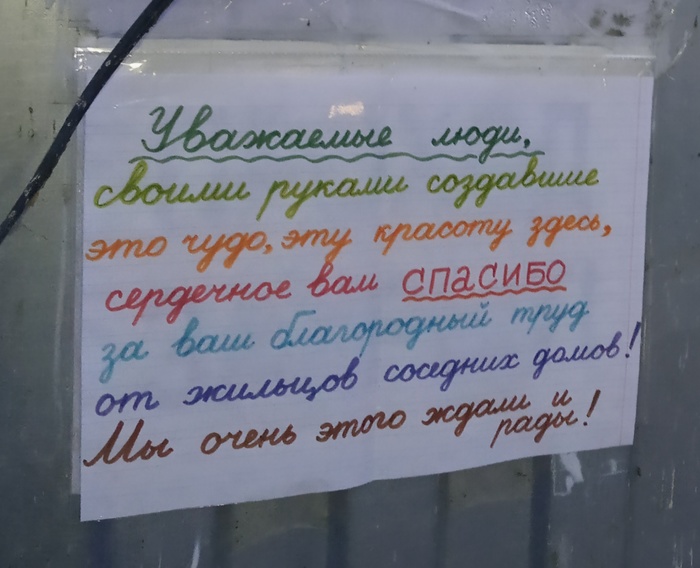 Уважаемые люди,
своими руками создавшие
это чудо, эту красоту здесь,
сердечное вам СПАСИБО
за ваш благородный труд
от жильцов соседних домов!
Мы очень этого ждали и
рады!